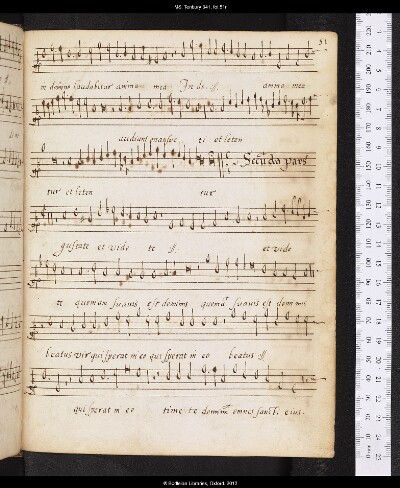 MS. Tenbury 341, fol.51r
51
in domino laudabitur anima mea In do ij. anima mea
audiant mansue ti et leten
Secunda pars
tur et leten tur
gustate et vide te ij et vide
te quoniam suavis est dominus suavis est dominus
beatus vir qui sperat in eo qui sperat in eo beatus ij
qui sperat in eo time te omnes eius.
© Bodleian Libraries, Oxford, 2012